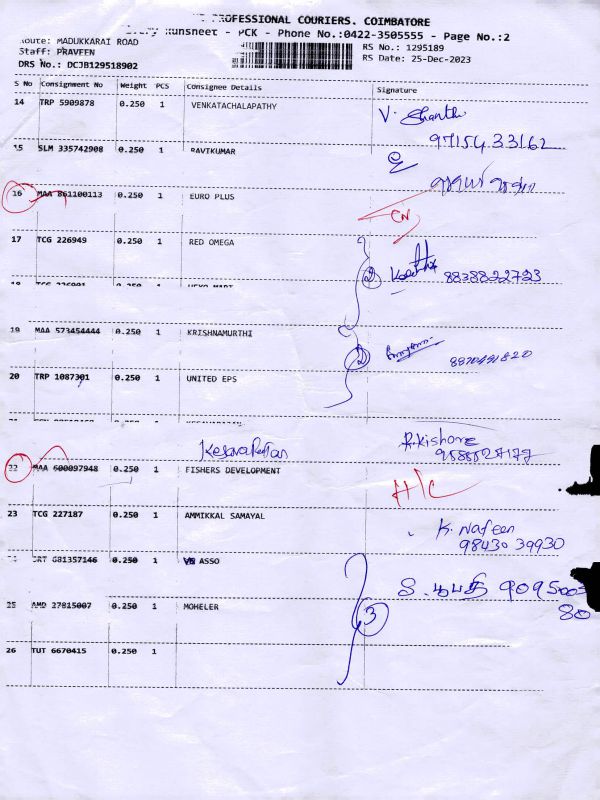 PROFESSIONAL COURIERS. COIMBATORE
Runsheet - PCK - Phone No.:0422-3505555 - Page No.:2
Route: MADUKKARAI ROAD
RS No.: 1295189
Staff: PRAVEEN
RS Date: 25-Dec-2023
DRS No.: DCJB129518902
S No Consignment No Weight PCS Consignee Details Signature
14 TRP 5909878 0.250 1 VENKATACHALAPATHY V. Shanthi
97154 33162
15 SLM 335742908 0.250 1 RAVIKUMAR
16 MAA 861100113 0.250 1 EURO PLUS
CN
17 TCG 226949 0.250 1 RED OMEGA
2 8838822723
18
19 MAA 573454444 0.250 1 KRISHNAMURTHI
2 8870491820
20 TRP 1087301 0.250 1 UNITED EPS
R.Kishore
22 MAA 600097948 0.250 1 FISHERS DEVELOPMENT
H/C
23 TCG 227187 0.250 1 AMMIKKAL SAMAYAL
K. Nafeen
98430 39930
GB1357146 0.250 1 VB ASSO
9095005
80
25 AMD 27815007 0.250 1 MOHELER
3
26 TUT 6670415 0.250 1